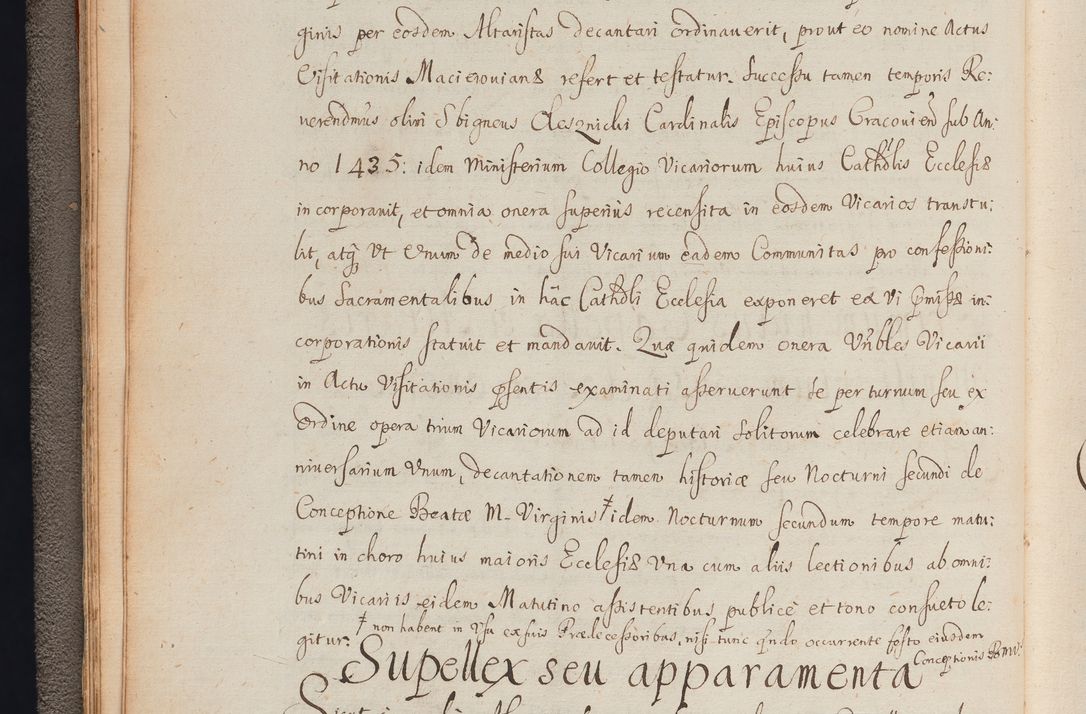 ginis per eosdem Altaristas decantari ordinaverit, prout eo nomine Actus
Visitationis Macieiovianæ refert et testatur. Successu tamen temporis Re:
verendmus olim Sbigneus Olesznicki Cardinalis Episcopus Cracovien sub An:
no 1435: idem Ministerium Collegio Vicariorum huius Cathdlis Ecclesiæ
incorporavit, et omnia onera superius recensita in eosdem Vicarios transtu:
lit, atq Vt Vnum de medio sui Vicarium eadem Communitas pro confessioni:
bus Sacramentalibus in hac Cathdli Ecclesia exponeret ex vi pmissæ in:
corporationis statuit et mandavit. Quæ quidem onera Vnbles Vicarii
in Actu Visitationis psentis examinati asseruerunt se per turnum seu ex
Ordine opera trium Vicariorum ad id deputari solitorum celebrare etiam an:
niversarium Vnum, decantationem tamen historiæ seu Nocturni secundi de
Conceptione Beatæ M. Virginis ‡ idem Nocturnum secundum tempore matu:
tini in choro huius maioris Ecclesiæ Vna cum aliis lectionibus ab omni:
bus Vicariis eidem Matutino assistentibus publice et tono consueto le:
gitur.
‡ non habent in Vsu ex suis Prædecessoribus, nisi tunc qndo occurrente festo eiusdem
Conceptionis B M V:
Supellex seu apparamenta